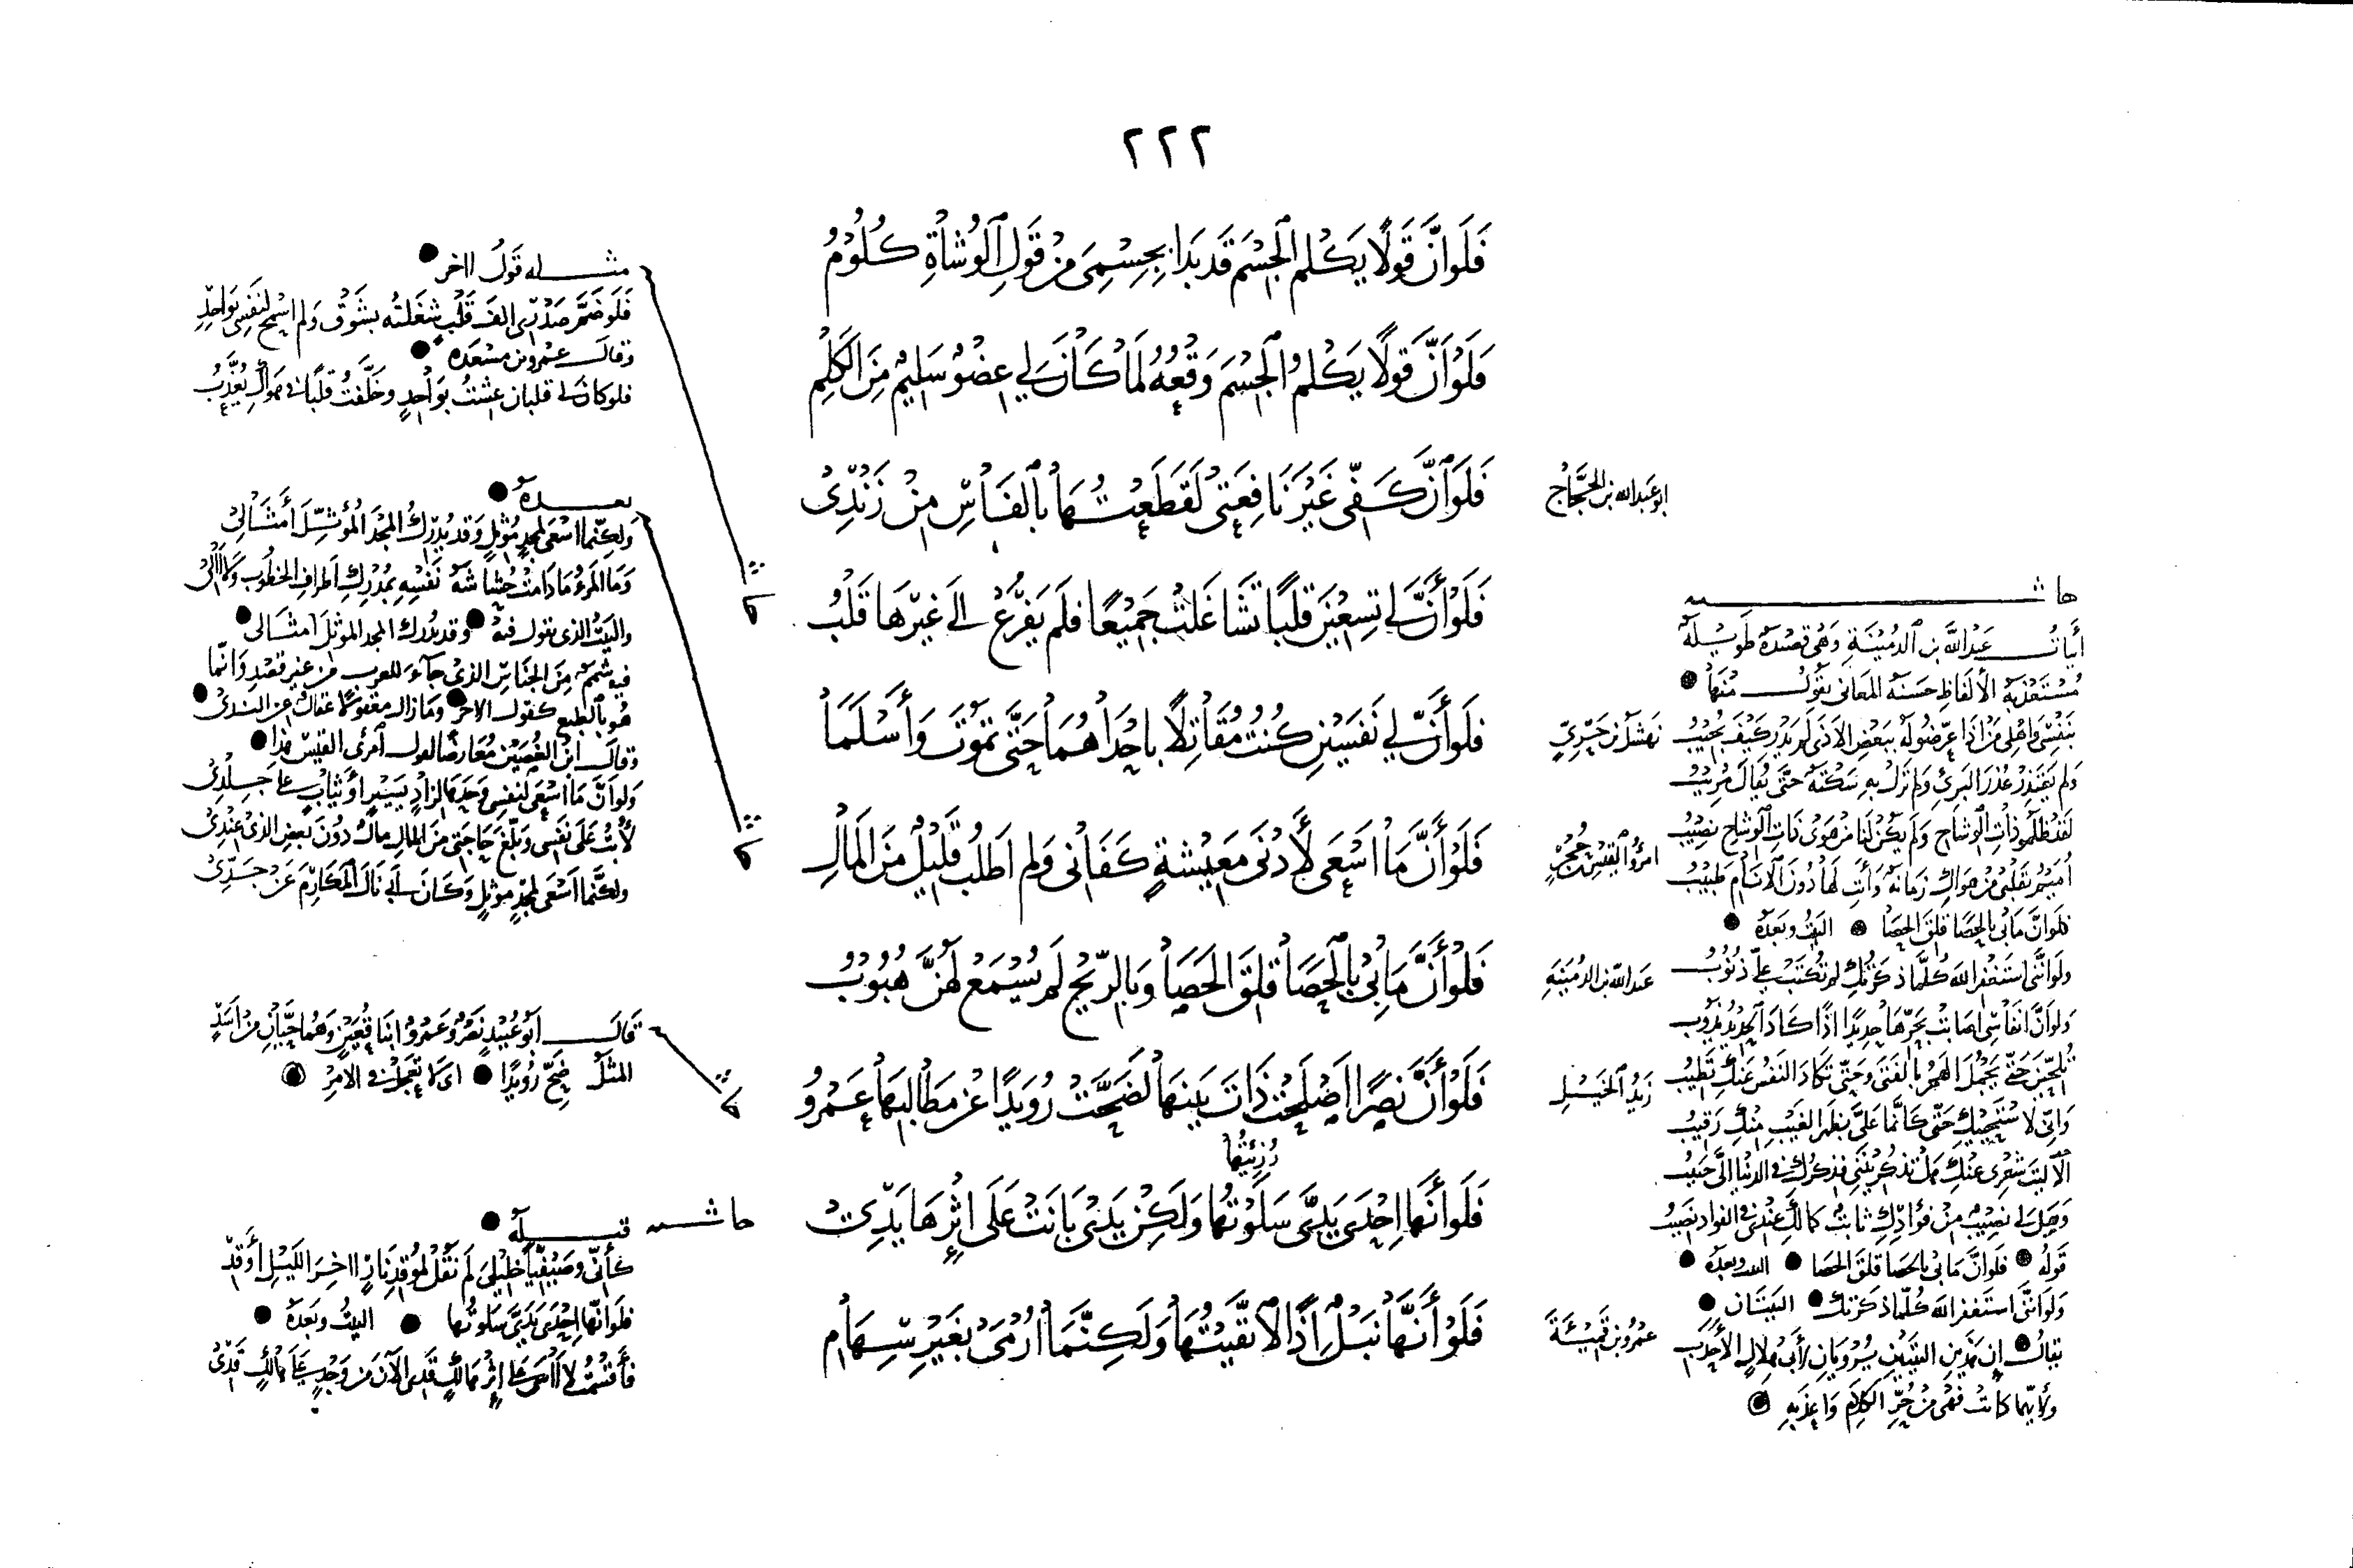 ٢٢٢
فَلَوْ أَنَّ قَوْلًا يَكْلِمُ الْجِسْمَ قَدْ بَدَا بِجِسْمِي مِنْ قَوْلِ الْوُشَاةِ كُلُوْمُ
وَلَوْ أَنَّ قَوْلًا يَكْلِمُ الْجِسْمَ وَقْعُهُ لَمَا كَانَ لِي عُضْوٌ سَلِيْمٌ مِنَ الْكَلْمِ
ابو عبد الله بن الحَجَّاج
فَلَوْ أَنَّ كَفِّي غَيْرَ نَافِعَتِي لَقَطَعْتُهَا بِالْفَأْسِ مِنْ زَنْدِيْ
فَلَوْ أَنَّ لِي تِسْعِيْنَ قَلْبًا تَشَاغَلَتْ جَمِيْعًا فَلَمْ يَفْرُغْ إِلَى غَيْرِهَا قَلْبُ
نَهْشَلُ بْنُ حَرِّيٍّ
فَلَوْ أَنَّ لِي نَفْسَيْنِ كُنْتُ مُقَاتِلًا بِإِحْدَاهُمَا حَتَّى تَمُوْتَ وَأَسْلَمَا
امرؤ القيس بن حُجْرٍ
فَلَوْ أَنَّ مَا أَسْعَى لِأَدْنَى مَعِيْشَةٍ كَفَانِي وَلَمْ أَطْلُبْ قَلِيْلٌ مِنَ الْمَالِ
عبد الله بن الدُمَيْنَةِ
فَلَوْ أَنَّ مَا بِيْ بِالْحَصَا فَلَقَ الْحَصَا وَبِالرِّيْحِ لَمْ يُسْمَعْ لَهُنَّ هُبُوْبُ
زَيْدُ الْخَيْلِ
فَلَوْ أَنَّ نَصْرًا أَصْلَحَتْ ذَاتَ بَيْنِهَا لَضَحَّتْ رُوَيْدًا عَنْ مَطَالِبِهَا عَمْرُو
رُزِئْتُهَا
فَلَوْ أَنَّهَا إِحْدَى يَدَيَّ سَلَوْتُهَا وَلَكِنْ يَدِيْ بَانَتْ عَلَى إِثْرِهَا يَدِيْ
عَمْرُو بْنُ قَمِيْئَةَ
فَلَوْ أَنَّهَا نَبْلٌ إِذًا لَاتَّقَيْتُهَا وَلَكِنَّمَا أُرْمَى بِغَيْرِ سِهَامِ
حاشية
أَبْيَاتُ عَبْدِ اللهِ بن الدُمَيْنَةِ وَهِيَ قصيدة طَوِيْلَة
مُسْتَعْذَبَة الأَلْفَاظِ حَسَنَة المعَانِي يَقُوْلُ مِنْهَا
بنَفْسِي وَأَهْلِي مَنْ إِذَا عَرَّضُوا لَهُ بِبَعْضِ الأَذَى لَمْ يَدْرِ كَيْفَ يُجِيْبُ
وَلَمْ يَعْتَذِرْ عُذْرَ البَرِيْ وَلَمْ تَزَلْ بِهِ سَكْتَة حَتَّى يُقَالَ مُرِيْبُ
لَقَدْ ظَلَمُوا ذَاتَ الْوِشَاحِ وَلَمْ يَكُنْ لَنَا مِنْ هَوَى ذَاتِ الْوِشَاحِ نَصِيْبُ
فَلَوْ أَنَّ مَا بِي بِالحَصَا فَلَقَ الحَصَا البَيْتُ وبَعْدَهُ
وَلَوْ أَنَّنِي أَسْتَغْفِرُ اللهَ كُلَّمَا ذَكَرْتُكِ لَمْ تُكْتَبْ عَلَيَّ ذُنُوْبُ
وَلَوْ أَنَّ أَنْفَاسِي أَصَابَتْ بِحَرِّهَا حَدِيْدًا إِذًا كَادَ الحَدِيْدُ يَذُوْبُ
وَإِنِّي لَأَسْتَحْيِيْكِ حَتَّى كَأَنَّمَا عَلَيَّ بِظَهْرِ الغَيْبِ مِنْكِ رَقِيْبُ
أَلَا لَيْتَ شِعْرِي عَنْكِ هَلْ تَذْكُرِيْنَنِي فَذِكْرُكِ فِي الدُنْيَا إِلَيَّ حَبِيْبُ
وَهَلْ لِي نَصِيْبٌ مِنْ فُؤَادِكِ ثَابِتٌ كَمَا لَكِ عِنْدِي فِي الفُؤَادِ نَصِيْبُ
قَوْلُهُ فَلَوْ أَنَّ مَا بِي بِالحَصَا فَلَقَ الحَصَا البيت وبعده
وَلَوْ أَنَّنِي أَسْتَغْفِرُ اللهَ كُلَّمَا ذَكَرْتُكِ البَيْتَانِ
يُقَالُ إِنَّ هَذَيْنِ البَيْتَيْنِ يُرْوَيَانِ لأَبِي هِلَالٍ الأَحْدَبِ
وَلِأَيِّهِمَا كَانَتْ فَهِيَ مِنْ حُرِّ الكَلَامِ وَأَعْذَبِهِ
مثله قَوْلُ الآخر
فَلَوْ ضَمَّ صَدْرِي أَلْفَ قَلْبٍ شَغَلْتُهُ بِشَوْقٍ وَلَمْ أَسْمَحْ لِنَفْسِي بِوَاحِدِ
وَقَالَ عَمْرُو بن مسْعَدَه
فلو كانَ لي قلبان عِشْتُ بِوَاحِدٍ وَخَلَّفْتُ قَلْبًا فِي هَوَاكِ يُعَذَّبُ
بعده
وَلَكِنَّمَا أَسْعَى لِمَجْدٍ مُؤَثَّلٍ وَقَدْ يُدْرِكُ المَجْدَ المُؤَثَّلَ أَمْثَالِيْ
وَمَا المَرْءُ مَا دَامَتْ حُشَاشَة نَفْسِهِ بِمُدْرِكِ أَطْرَافِ الخُطُوبِ وَلَا آلِيْ
والبَيْتُ الذي يقول فيه وقد يُدْرِك المجد المؤثل أمثالي
فِيهِ مِنَ الجِنَاسِ الذيْ جَاءَ لِلعرب من غير قَصْدٍ وَإِنَّمَا
هُوَ بِالطَّبع كقول الآخر وَمَا زَالَ مَعْقُولًا عِقَالٌ عن الندَى
وَقَالَ مُعَارِضًا لقول امرئ القيس هذا
وَلَوْ أَنَّ مَا أَسْعَى لِنَفْسِي وَحْدَهَا لِزَادٍ يَسِيْرٍ أَوْ ثِيَابٍ عَلَى جِلْدِيْ
لَأُبْتُ عَلَى نَفْسِي وَبَلَّغَ حَاجَتِي مِنَ المَالِ مَالٌ دُوْنَ بَعْضِ الذيْ عِنْدِيْ
وَلَكِنَّمَا أَسْعَى لِمَجْدٍ مُؤَثَّلٍ وَكَانَ أَبِي نَالَ المَكَارِمَ عَنْ جَدِّيْ
قَالَ أَبُو عُبَيْدٍ نَصْرٌ وَعَمْرٌو ابْنَا قُعَيْنٍ وَهُمَا حَيَّانِ مِنْ أَسَدٍ
المثلُ ضَحِّ رُوَيْدًا أَي لَا تَعْجَلْ فِي الأَمْرِ
حاشية قبله
كَأَنِّي وَصَيْفِيًّا خَلِيْلِيَ لَمْ نَقُلْ لِمُوْقِدِ نَارٍ آخِرَ اللَّيْلِ أَوْقِدِ
فَلَوْ أَنَّهَا إِحْدَى يَدَيَّ سَلَوْتُهَا البيتُ وبَعْدَهُ
فَأَقْسَمْتُ لَا آسَى عَلَى إِثْرِ هَالِكٍ قَدِي الآنَ مِنْ وَجْدٍ عَلَى هَالِكٍ قَدِيْ